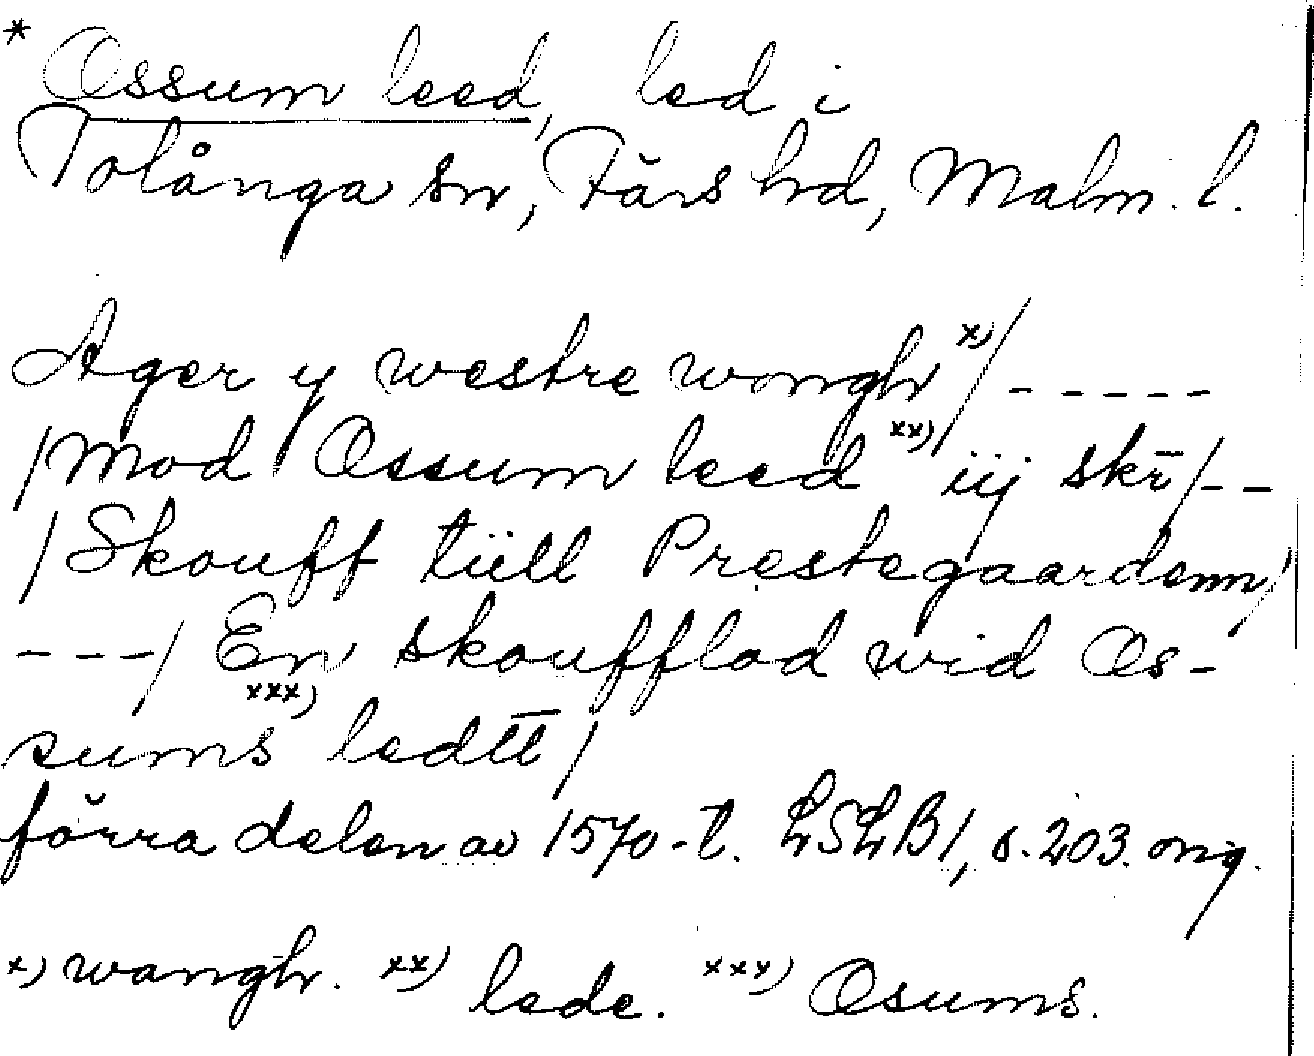 * Ossum leed, led i
Tolånga sn, Färs hd, Malm. l.
Ager y westre wongh x) / -----
/ Mod Ossum leed xx) iij skr̄ / --
/ Skouff tüll Prestegaardenn /
--- / En skoufflod wid Os-
sums xxx) ledt̄t̄ /
förra delen av 1570-t. LSLB1, s. 203. orig.
x) wangh. xx) lede. xxx) Osums.